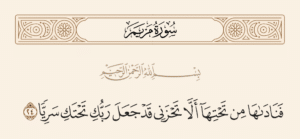 سُورَةُ مَرْيَمَ
بِسْمِ اللَّهِ الرَّحْمَٰنِ الرَّحِيمِ
فَنَادَىٰهَا مِن تَحْتِهَآ أَلَّا تَحْزَنِى قَدْ جَعَلَ رَبُّكِ تَحْتَكِ سَرِيًّا ٢٤